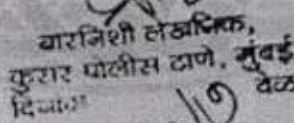 बारनिशी लेखनिक,
कुरार पोलीस ठाणे, मुंबई
दिनांक वेळ